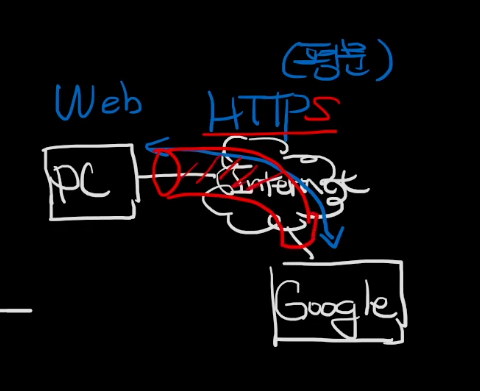 (평문)
Web HTTPS
PC
Internet
Google